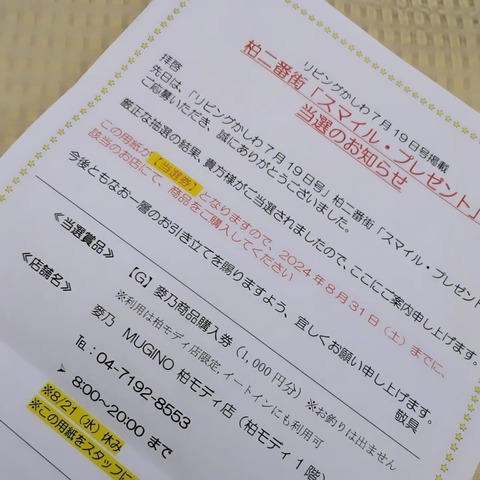 リビングかしわ７月１９日号掲載
柏二番街「スマイル・プレゼント」
当選のお知らせ
拝啓
先日は、「リビングかしわ７月１９日号」柏二番街「スマイル・プレゼント
ご応募いただき、誠にありがとうございました。
厳正な抽選の結果、貴乃様がご当選されましたので、ここにご案内申し上げます。
この用紙が【当選券】となりますので、2024年8月31日（土）までに、
該当のお店にて、商品をご購入してください
今後ともなお一層のお引き立てを賜りますよう、宜しくお願い申し上げます。
敬具
≪当選賞品≫ 【G】麥乃商品購入券（1,000円分）※お釣りは出ません
※利用は柏モディ店限定,イートインにも利用可
≪店舗名≫ 麥乃 MUGINO 柏モディ店（柏モディ1階）
℡：04-7192-8553
➢ 8:00~20:00 まで
※8/21（水）休み
※この用紙をスタッフに